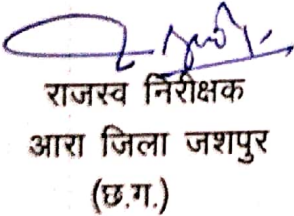 राजस्व निरीक्षक
आरा जिला जशपुर
(छ.ग.)